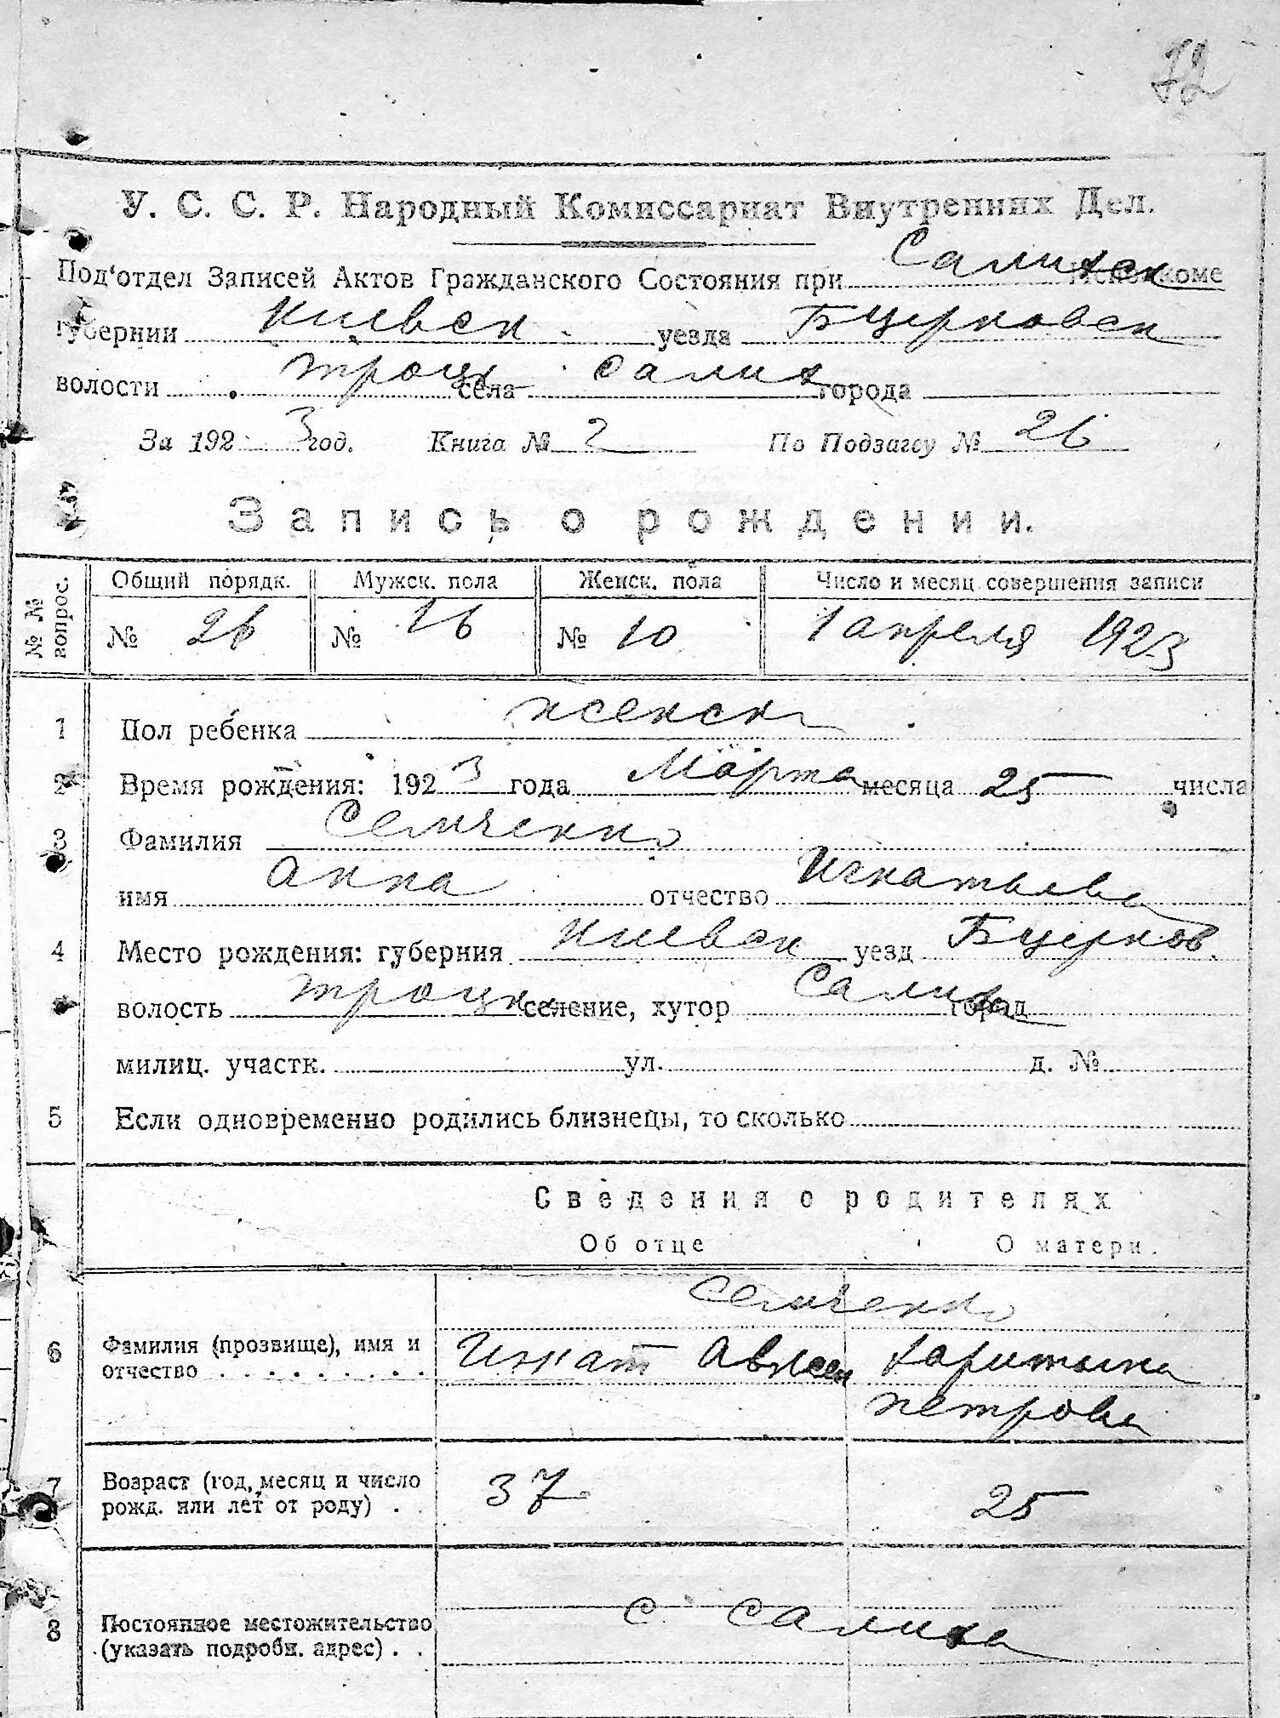 72
У. С. С. Р. Народный Комиссариат Внутренних Дел.
Под'отдел Записей Актов Гражданского Состояния при Салихск Исполкоме
губернии Киевск уезда Бцерковск
волости Троцк села Салих города
За 1923 год. Книга № 2 По Подзагсу № 26
Запись о рождении.
№ № вопрос. Общий порядк. Мужск. пола Женск. пола Число и месяц совершения записи
№ 26 № 16 № 10 1 апреля 1923
1 Пол ребенка женск
2 Время рождения: 1923 года Марта месяца 25 числа
3 Фамилия Семченко
имя Анна отчество Игнатьева
4 Место рождения: губерния Киевск уезд Бцерков.
волость Троцк селение, хутор Салиха город
милиц. участк. ул. д. №
5 Если одновременно родились близнецы, то сколько
Сведения о родителях
Об отце О матери.
Семченко
6 Фамилия (прозвище), имя и Игнат Авксен Харитына
отчество Петрова
7 Возраст (год, месяц и число 37 25
рожд. или лет от роду)
8 Постоянное местожительство с. Салиха
(указать подробн. адрес)